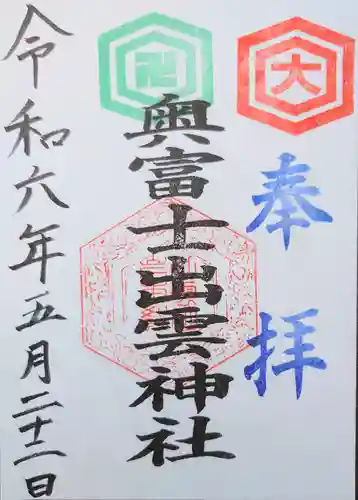 奉拝
大
卍
奥富士出雲神社
令和六年五月二十一日